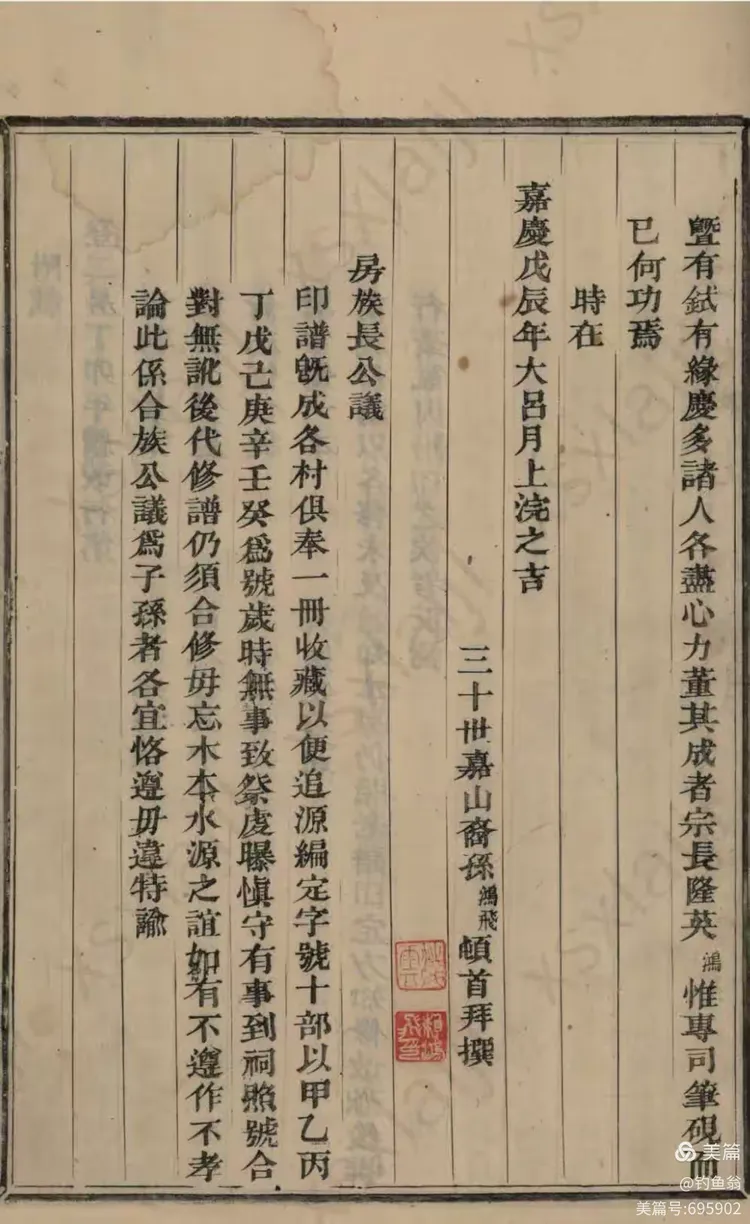 暨有鉽有緣慶多諸人各盡心力董其成者宗長隆英鴻惟專司筆硯而
已何功焉
時在
嘉慶戊辰年大呂月上浣之吉
三十世嘉山裔孫鴻飛頓首拜撰
房族長公議
印譜旣成各村俱奉一冊收藏以便追源編定字號十部以甲乙丙
丁戊己庚辛壬癸爲號歲時無事致祭虔曝愼守有事到祠照號合
對無訛後代修譜仍須合修毋忘木本水源之誼如有不遵作不孝
論此係合族公議爲子孫者各宜恪遵毋違特諭
美篇
@钓鱼翁
美篇号:695902